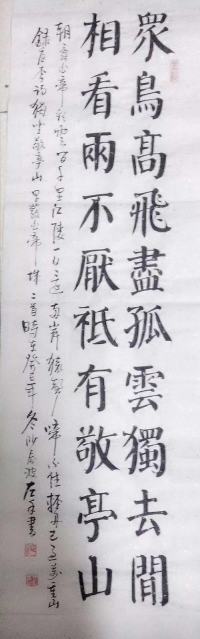 衆鳥髙飛盡孤雲獨去閒
相看兩不厭祗有敬亭山
朝辭白帝彩雲間千里江陵一日還兩岸猿聲啼不住輕舟已過萬重山
李白詩獨坐敬亭山早發白帝城二首時在癸巳年冬左手書